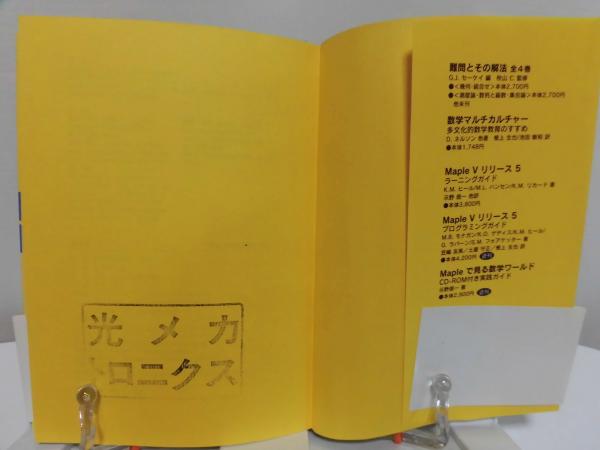 光メカ
トロニクス
難問とその解法 全4巻
G.J. セーケイ 編 秋山 仁 監修
●<幾何・組合せ>本体2,700円
●<確率論・数列と級数・集合論>本体2,700円
他未刊
数学マルチカルチャー
多文化的数学教育のすすめ
D. ネルソン 他著 根上 生也/池田 敏和 訳
●本体1,748円
Maple V リリース 5
ラーニングガイド
K.M. ヒール/M.L. ハンセン/K.M. リカード 著
示野 信一 他訳
●本体3,800円
Maple V リリース 5
プログラミングガイド
M.B. モナガン/K.O. ゲデス/K.M. ヒール/
G. ラバーン/S.M. フォアケッター 著
●本体4,200円 近刊
Maple で見る数学ワールド
CD-ROM付き実践ガイド
示野信一 著
●本体2,800円 近刊